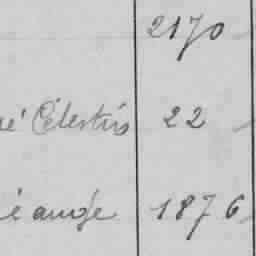 2170
né Célestin 22
é ange 1876